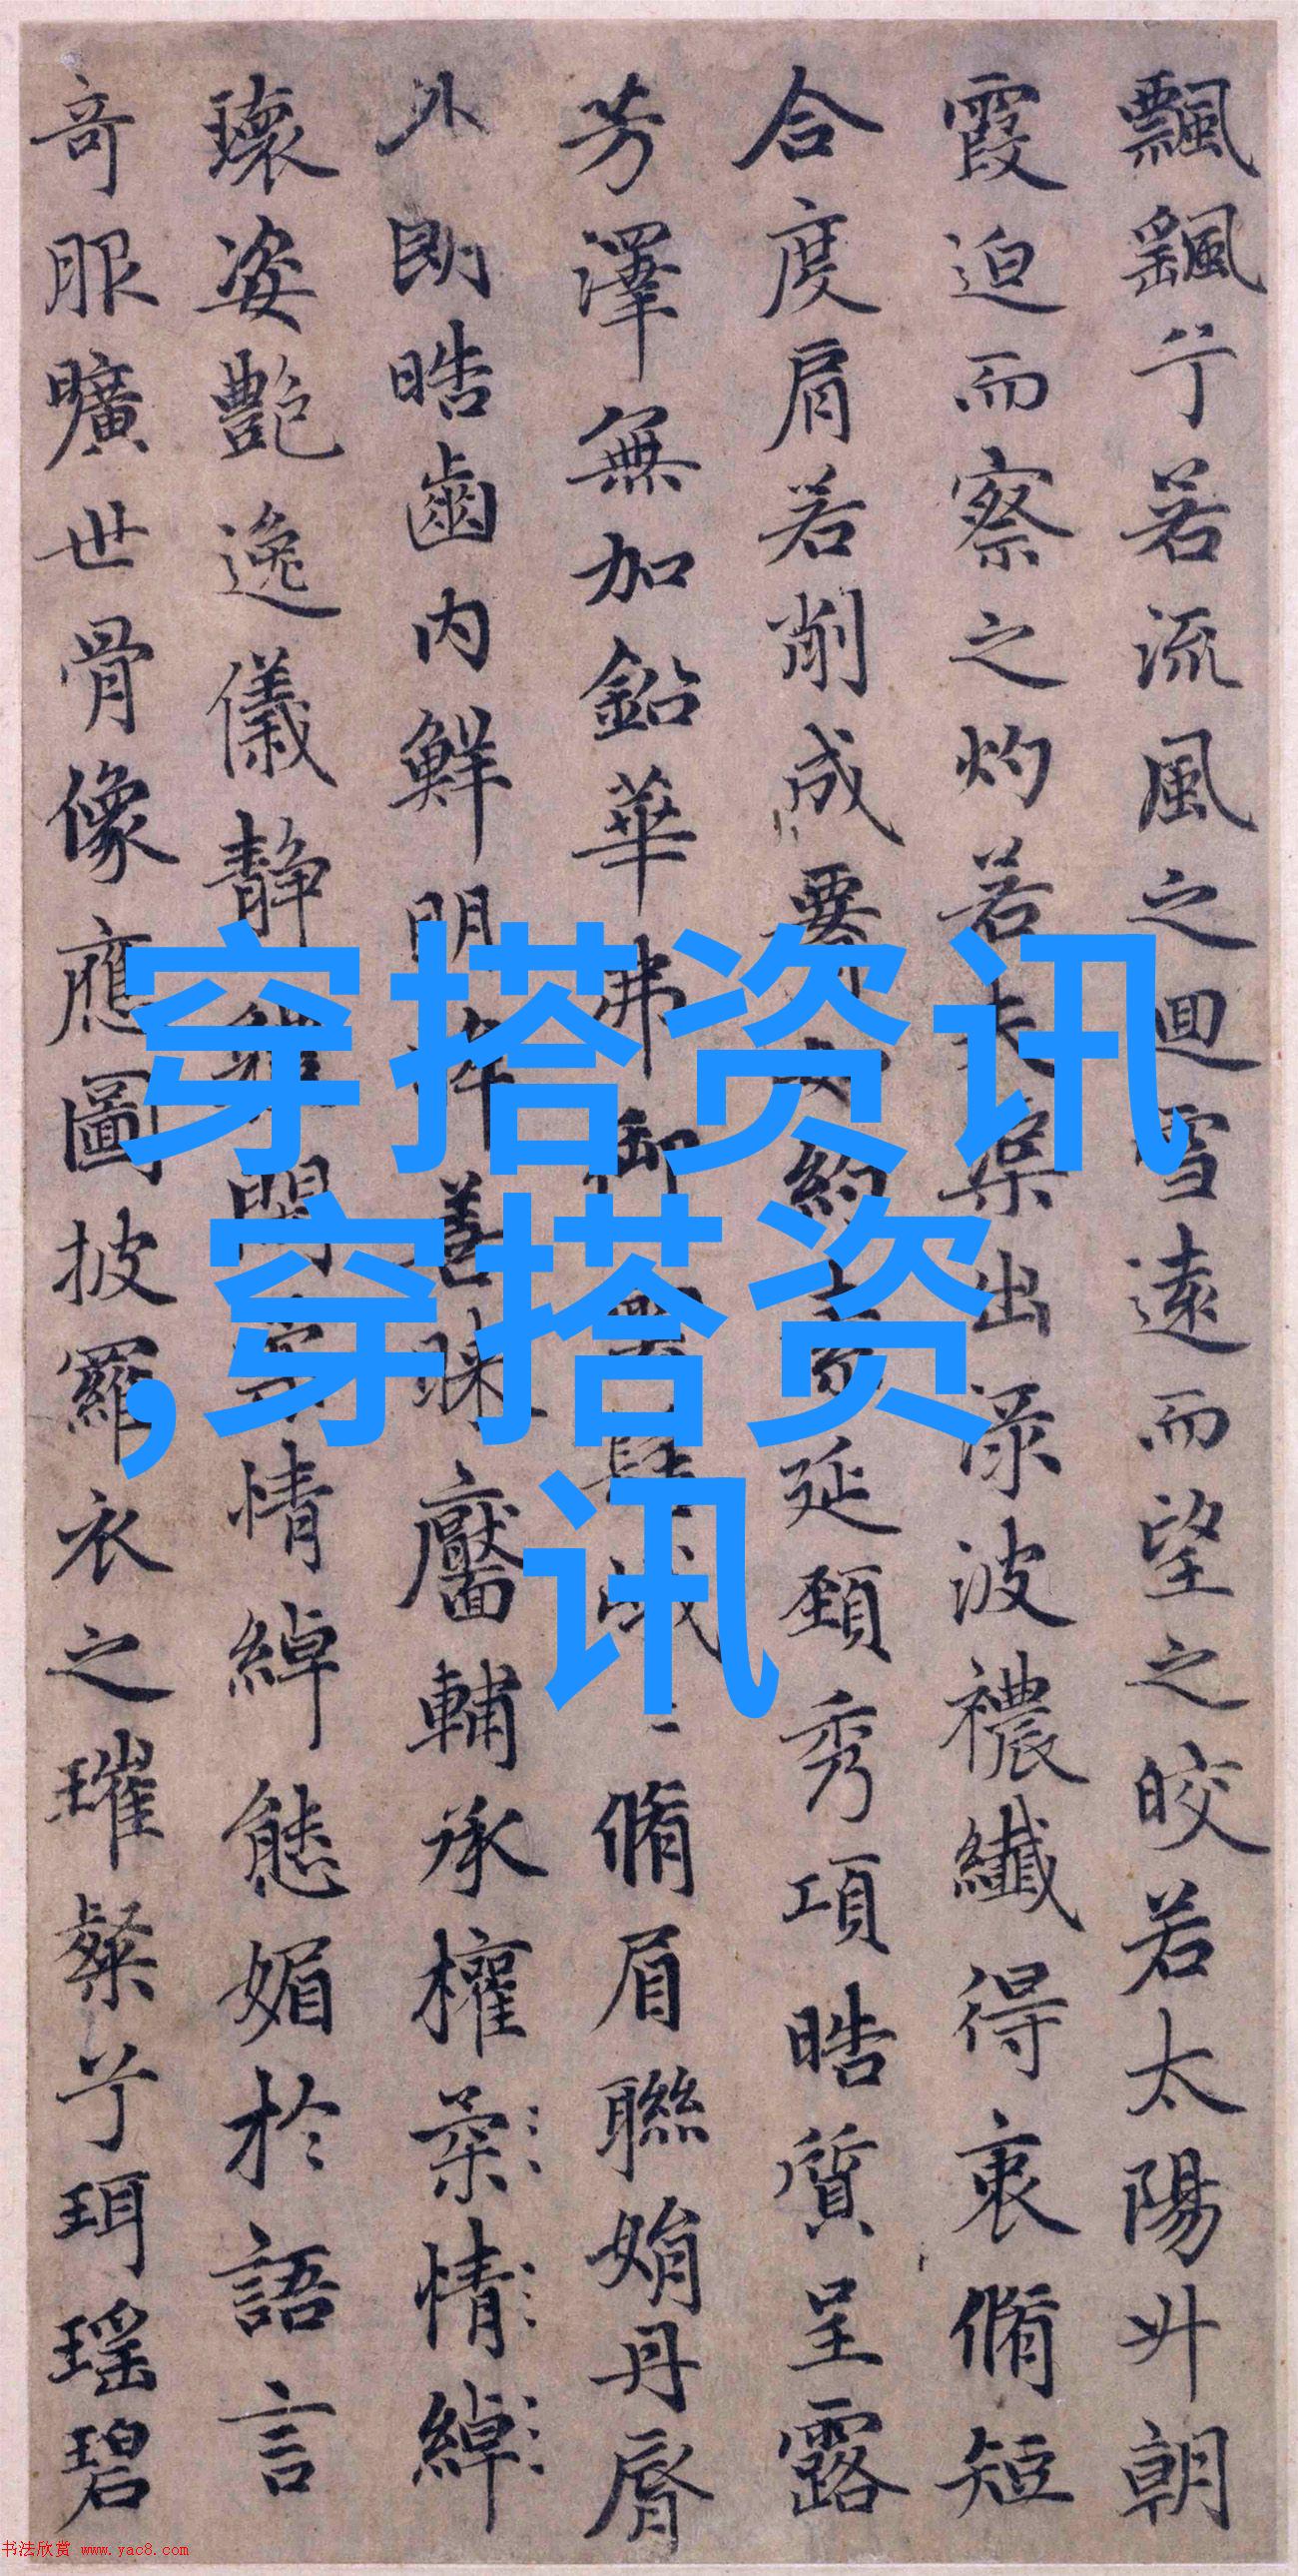 飄飖兮若流風之迴雪遠而望之皎若太陽升朝
霞迫而察之灼若芙蕖出淥波襛纖得衷脩短
合度肩若削成要如約素延頸秀項皓質呈露
芳澤無加鉛華弗御雲髻峨〻脩眉聯娟丹脣
外朗皓齒內鮮明眸善睞靨輔承權柔情綽
瓌姿艷逸儀靜體閑柔情綽態媚於語言
奇服曠世骨像應圖披羅衣之璀粲兮珥瑤碧
穿搭资讯
,穿搭资
讯
书法欣赏 www.yac8.com